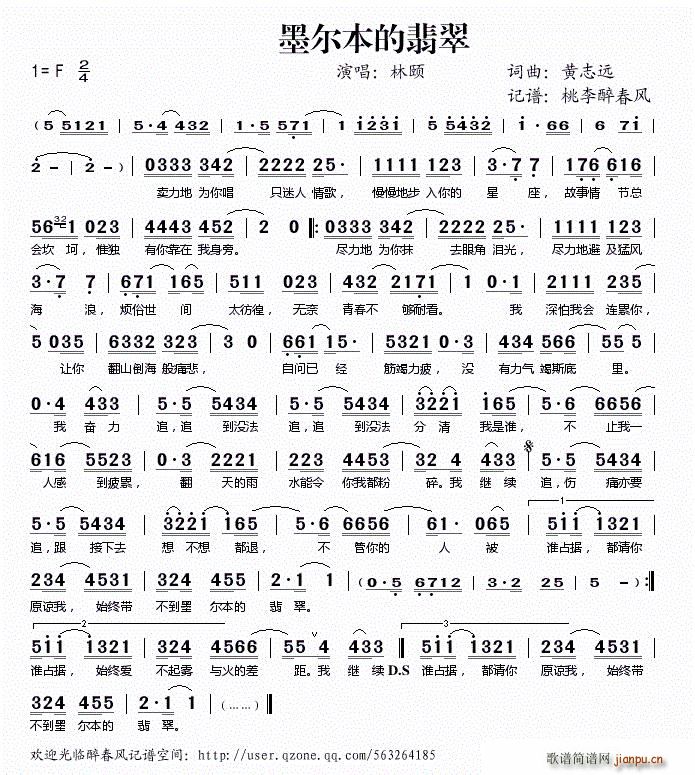 墨尔本的翡翠
1=F 2/4 演唱：林颐 词曲：黄志远
记谱：桃李醉春风
(5 5121 | 5·4 432 | 1·5 571 | 1 1231 | 5 5432 | 1·66 | 6 71 |
2 - | 2 - ) | 0333 342 | 2222 25· | 1111 111 | 3·77 | 176 616 |
卖力地 为你唱 只迷人 情歌， 慢慢地步 入你的 星 座， 故事情 节总
56 32 1 023 | 4443 452 | 2 0 |: 0333 342 | 2222 25· | 1111 123 |
会坎 坷， 惟独 有你靠在 我身旁。 尽力地 为你抹 去眼角 泪光， 尽力地避 及猛风
3·7 7 | 671 165 | 511 023 | 4443 2171 | 1 0·1 | 2111 235 |
海 浪， 烦俗世 间 太彷徨， 无奈 青春不 够耐看。 我 深怕我会 连累你，
5 035 | 6332 323 | 3 0 | 661 15· | 5321 0·3 | 434 555 | 5 5 |
让你 翻山倒海 般痛悲， 自问已 经 筋竭力疲， 没 有力气 竭斯底 里。
0·4 433 | 5·5 5434 | 5·5 5434 | 3221 165 | 5·6 6656 |
我 奋力 追， 追 到没法 追， 追 到没法 分 清 我是谁， 不 止我一
616 5523 | 0·3 2123 | 223 4453 | 32 4 433 | 5·5 5434 |
人感 到疲累， 翻 天的雨 水能令 你我都粉 碎。我 继续 追， 伤 痛亦要
5·5 5434 | 3221 165 | 5·6 6656 | 61· 065 | 511 1321 |
1
追， 跟 接下去 想 不想 都退， 不 管你的 人 被 谁占据， 都请你
234 4531 | 324 455 | 2·1 1 | (0·5 6712 | 3·2 25 | 5 5 ) :|
原谅我， 始终带 不到墨 尔本的 翡 翠。
2 3
511 1321 | 324 4566 | 55· 4 433 D.S | 511 1321 | 234 4531 |
谁占据， 始终爱 不起雾 与火的差 距。我 继续 谁占据， 都请你 原谅我， 始终带
324 455 | 2·1 1 | (……) |
不到墨 尔本的 翡 翠。
欢迎光临醉春风记谱空间：http://user.qzone.qq.com/563264185
歌谱简谱网
jianpu.cn